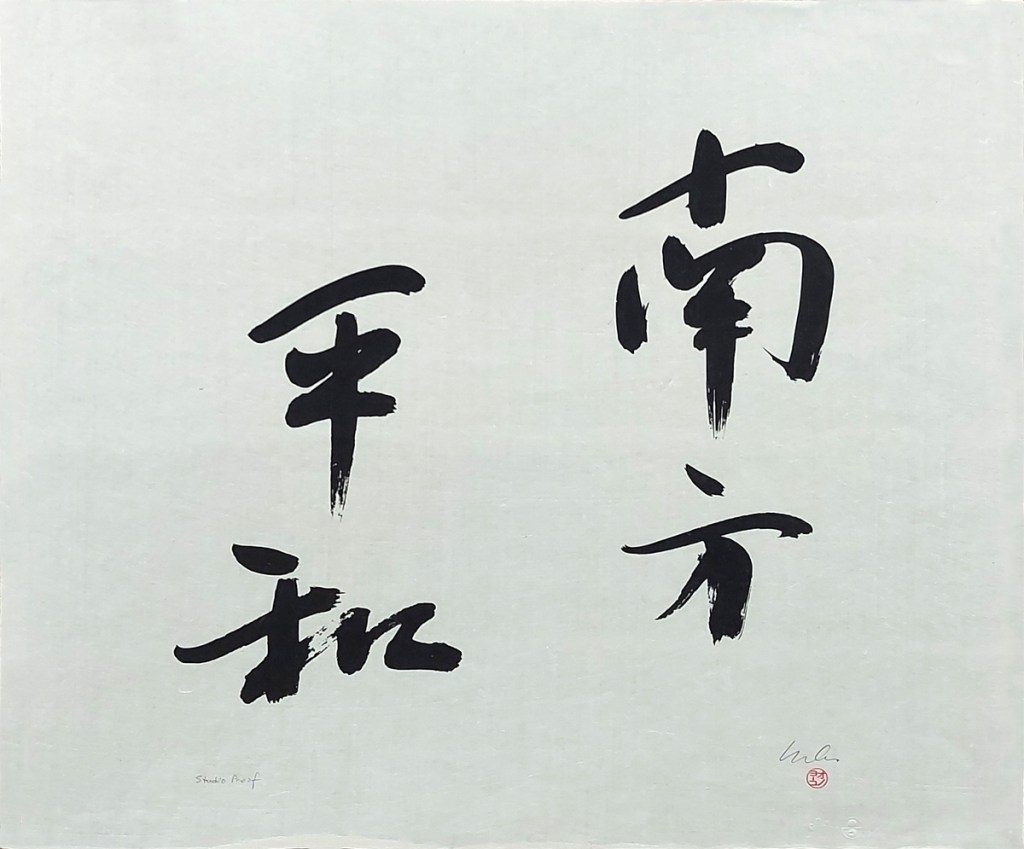 南方
平和
Studio Proof